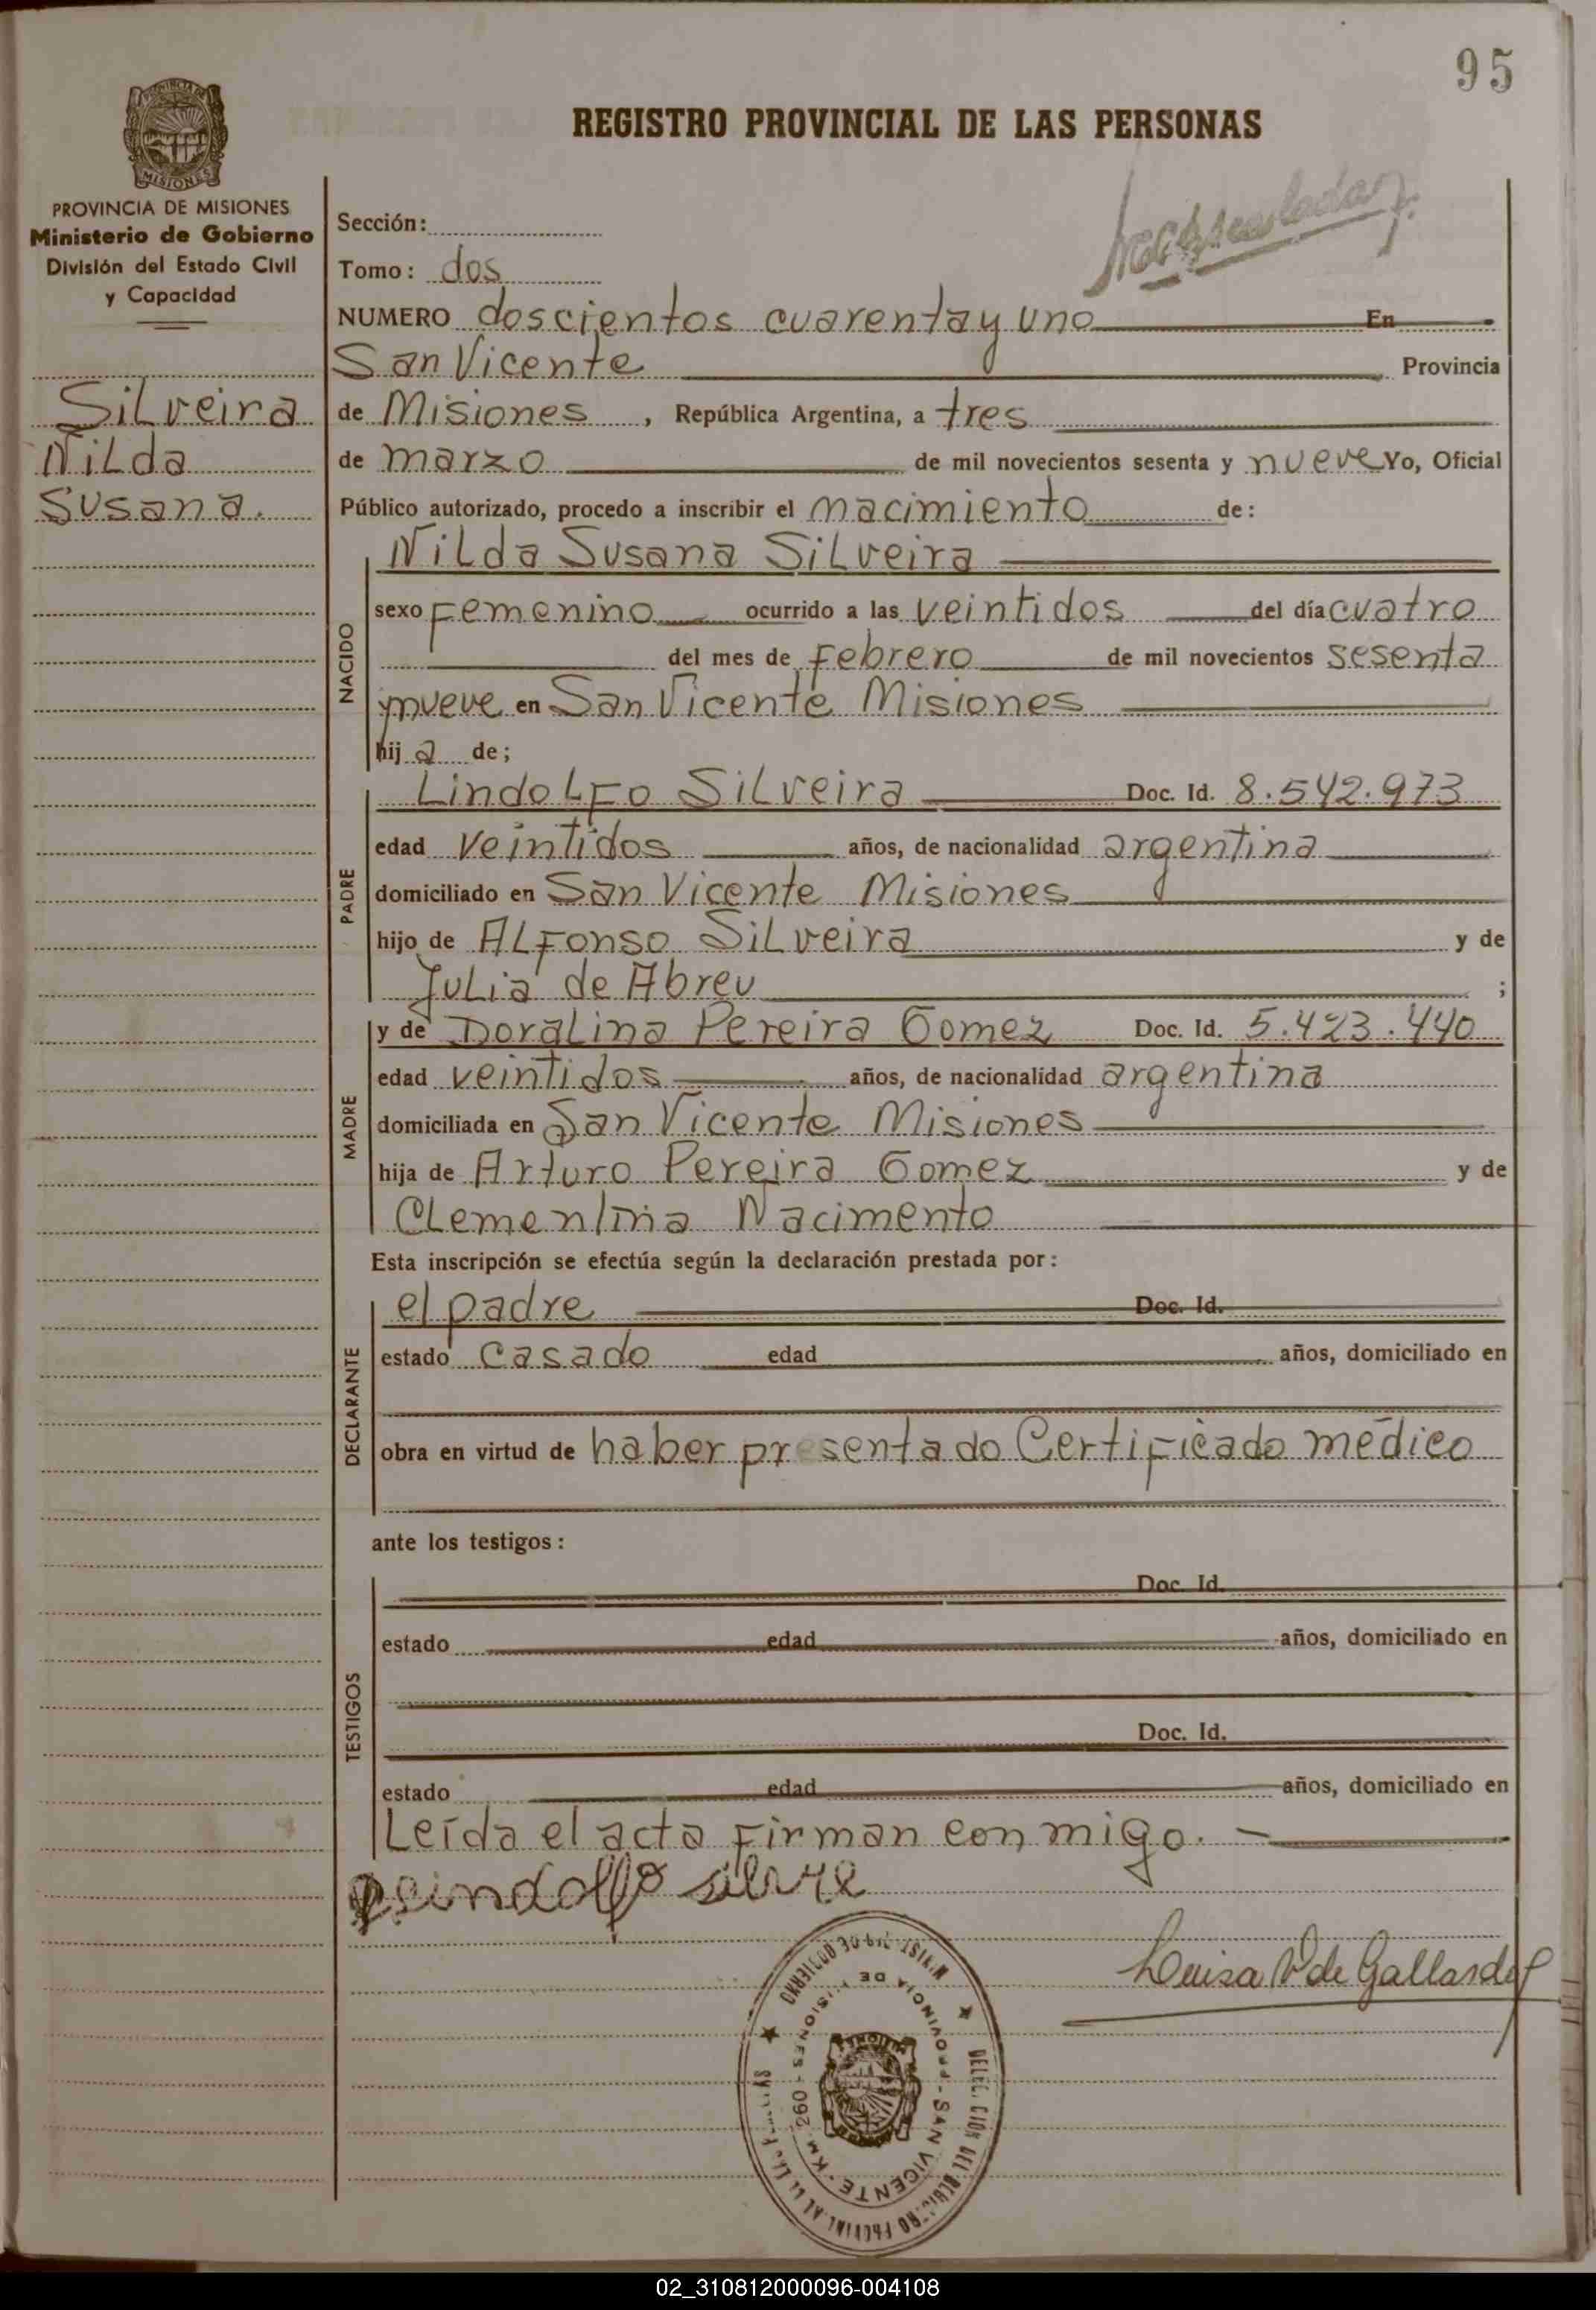 95
REGISTRO PROVINCIAL DE LAS PERSONAS
PROVINCIA DE
MISIONES
PROVINCIA DE MISIONES
Ministerio de Gobierno
División del Estado Civil
y Capacidad
Silveira
Nilda
Susana.
Sección:
Tomo: dos
NUMERO doscientos cuarenta y uno En
San Vicente Provincia
de Misiones, República Argentina, a tres
de marzo de mil novecientos sesenta y nueve Yo, Oficial
Público autorizado, procedo a inscribir el nacimiento de:
NACIDO
Nilda Susana Silveira
sexo Femenino ocurrido a las veintidos del día cuatro
del mes de Febrero de mil novecientos sesenta
ynueve en San Vicente Misiones
hija de;
PADRE
Lindolfo Silveira Doc. Id. 8.542.973
edad veintidos años, de nacionalidad argentina
domiciliado en San Vicente Misiones
hijo de Alfonso Silveira y de
Julia de Abreu ;
MADRE
y de Doralina Pereira Gomez Doc. Id. 5.423.440
edad veintidos años, de nacionalidad argentina
domiciliada en San Vicente Misiones
hija de Arturo Pereira Gomez y de
Clementina Nacimento
Esta inscripción se efectúa según la declaración prestada por:
DECLARANTE
el padre Doc. Id.
estado casado edad años, domiciliado en
obra en virtud de haber presentado Certificado médico
ante los testigos:
TESTIGOS
Doc. Id.
estado edad años, domiciliado en
Doc. Id.
estado edad años, domiciliado en
Leída el acta firman conmigo. -
Luisa V de Gallardo
PROVINCIA DE MISIONES - KM. 260 - SAN VICENTE
02_310812000096-004108